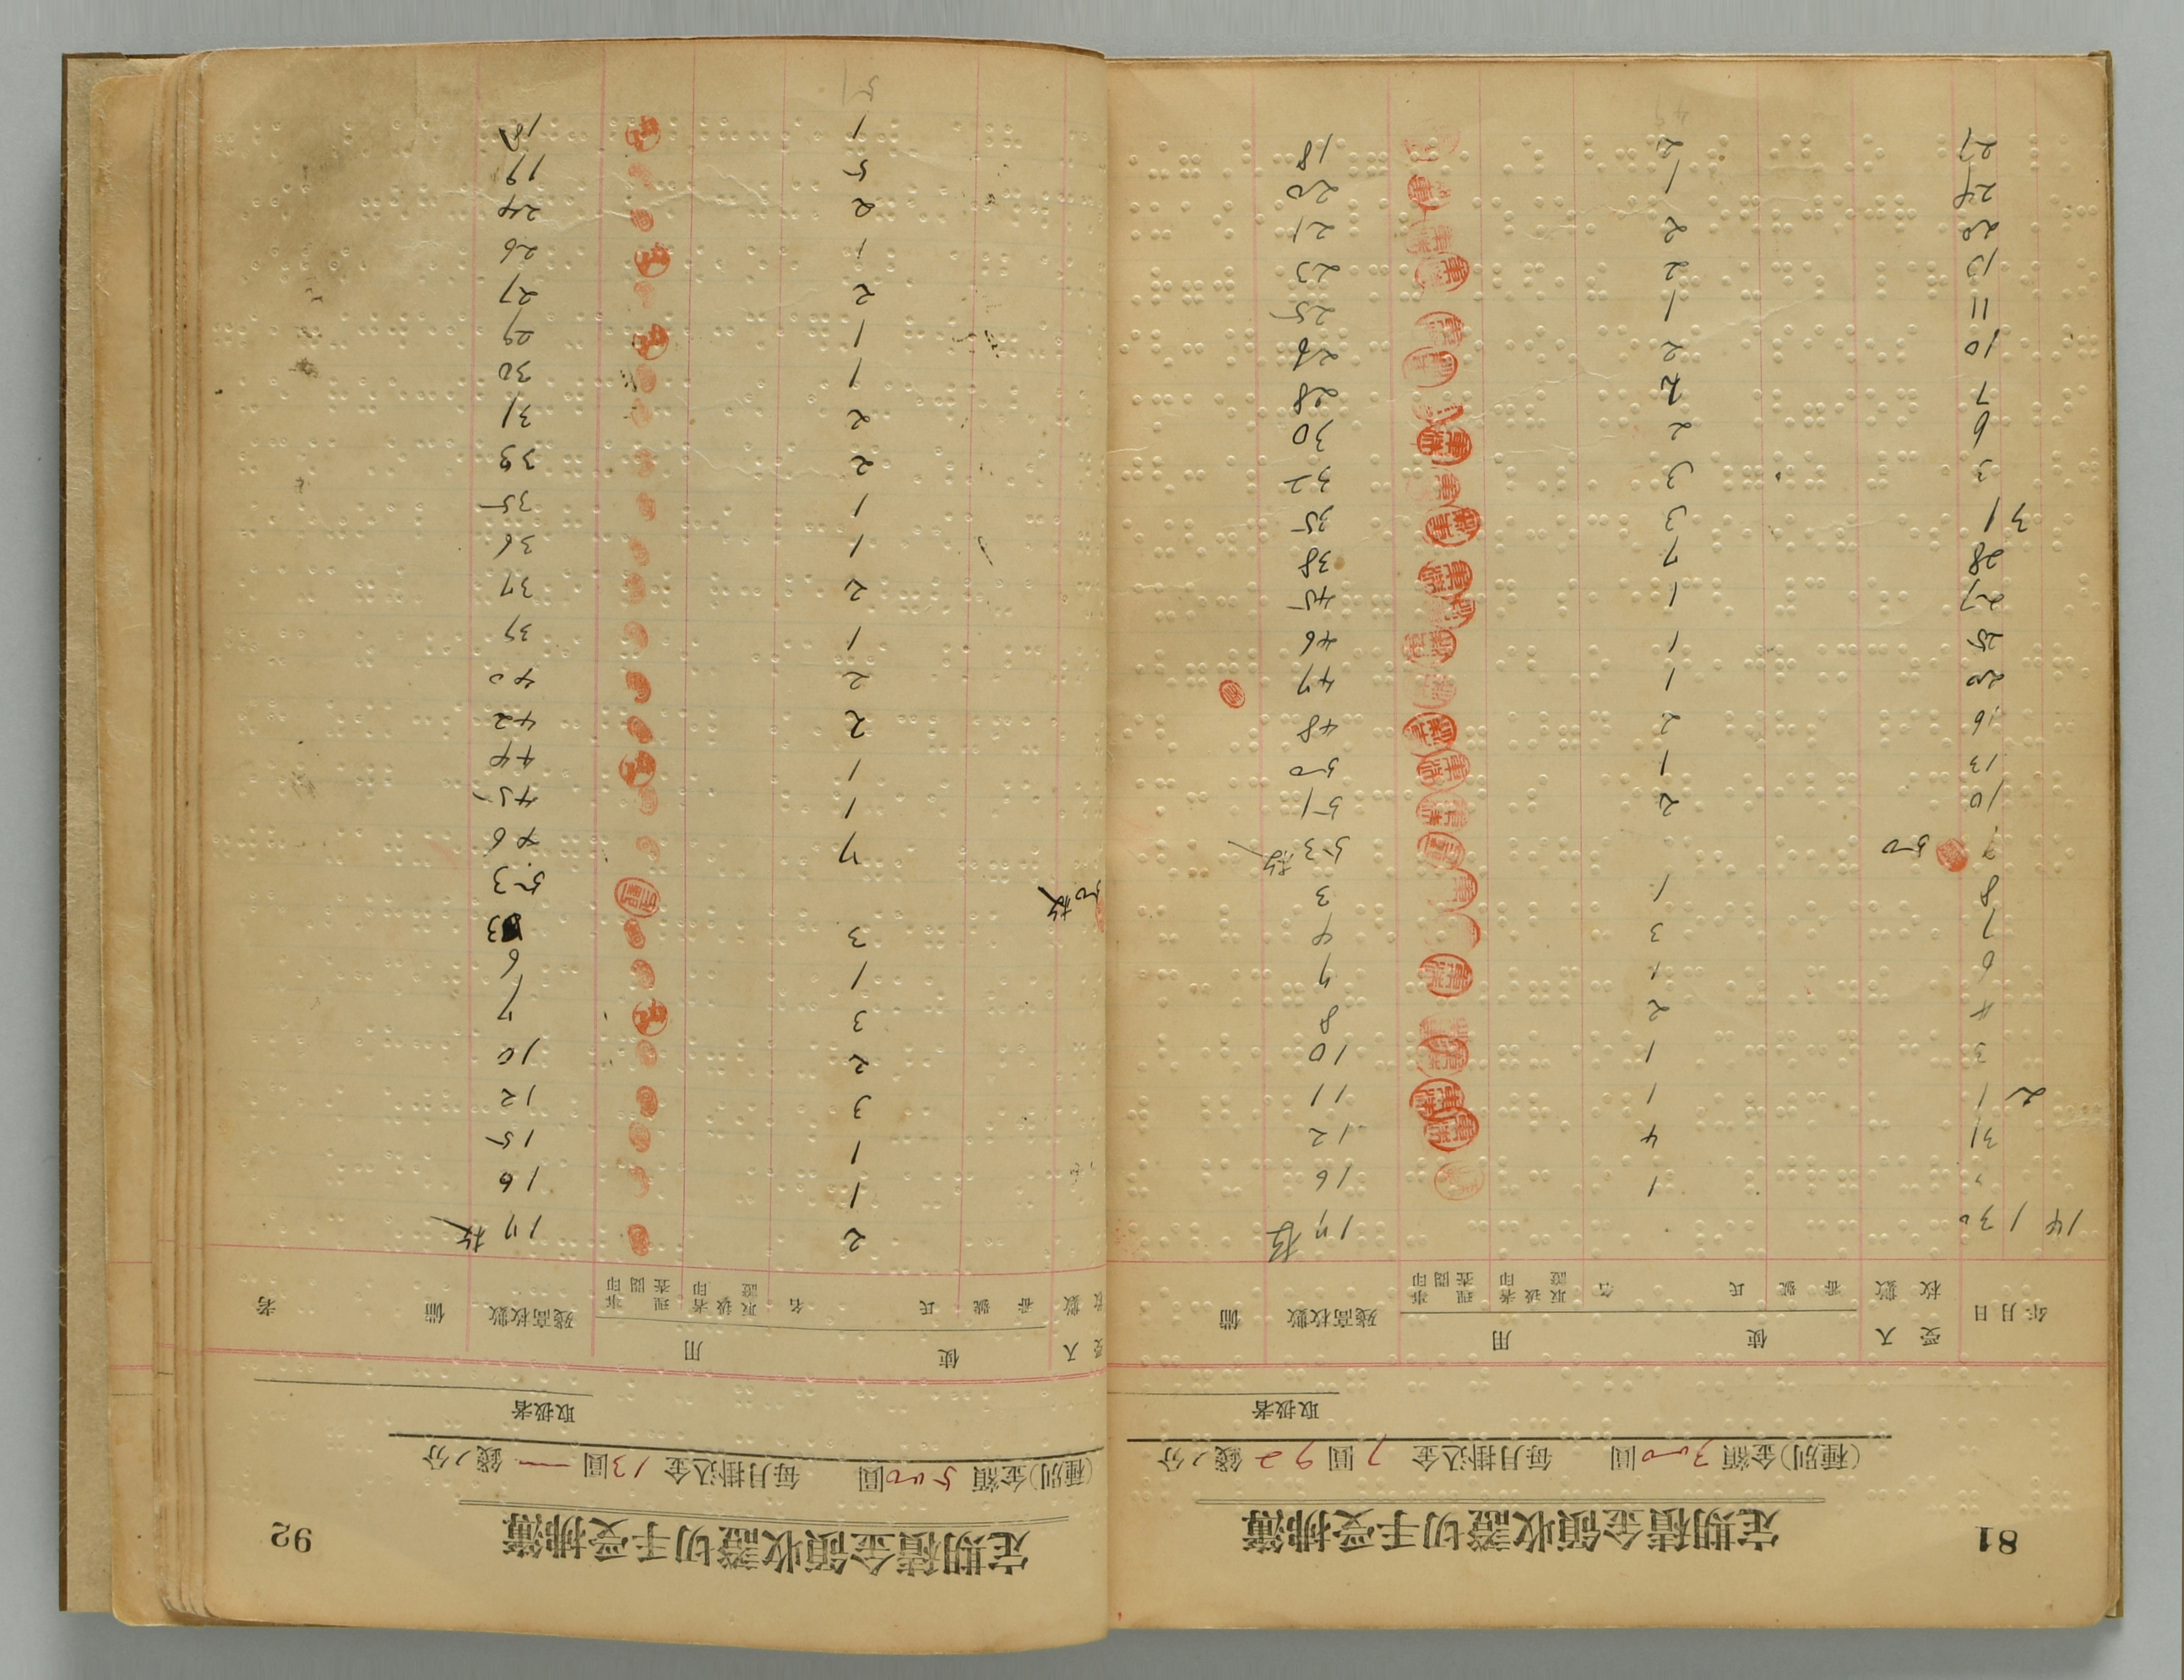 81
定期積金領收證切手受拂簿
(種別)金額 300圓 每月掛込金 7圓92錢ノ分
取扱者
年月日 受入枚數 使用 殘高枚數 備
番號 氏名 取扱者證印 理事査閲印
14 1 30 17枚
〃 1 16
31 4 12
2 1 1 11
3 1 10
4 2 8
6 1 7
7 3 4
8 1 3
9 50 53枚
10 2 51
13 1 50
16 2 48
20 1 47
25 1 46
27 1 45
28 7 38
3 1 3 35
3 3 32
6 2 30
7 2 28
10 2 26
11 1 25
13 2 23
20 2 21
24 1 20
27 2 18
92
定期積金領收證切手受拂簿
(種別)金額 500圓 每月掛込金 13圓―錢ノ分
取扱者
受入枚數 使用 殘高枚數 備考
番號 氏名 取扱者證印 理事査閲印
2 17枚
1 16
1 15
3 12
2 10
3 7
1 6
3 3
50枚 53
7 46
1 45
1 44
2 42
2 40
1 39
2 37
1 36
1 35
2 33
2 31
1 30
1 29
2 27
1 26
2 24
5 19
1 18
51